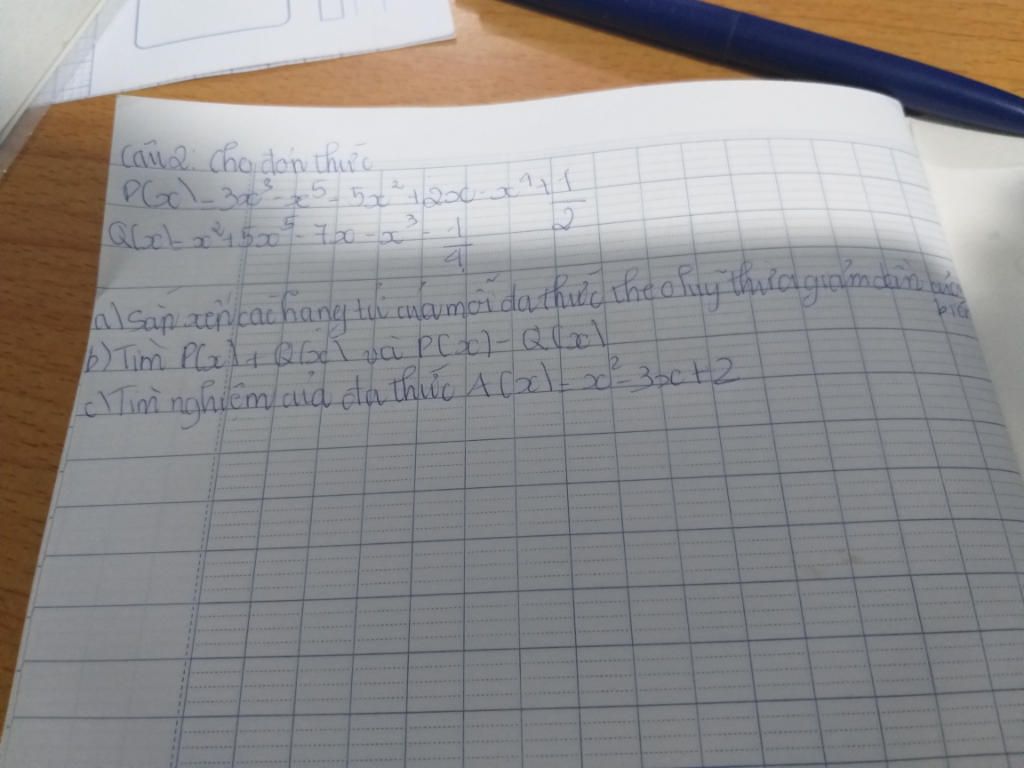 Câu 2: Cho đơn thức
P(x) = 3x³ - x⁵ - 5x² + 2x - x⁴ + 1/2
Q(x) = x² + 5x⁵ - 7x - x³ - 1/4
a) Sắp xếp các hạng tử của mỗi đa thức theo luỹ thừa giảm dần của biến
b) Tìm P(x) + Q(x) và P(x) - Q(x)
c) Tìm nghiệm của đa thức A(x) = x² - 3x + 2